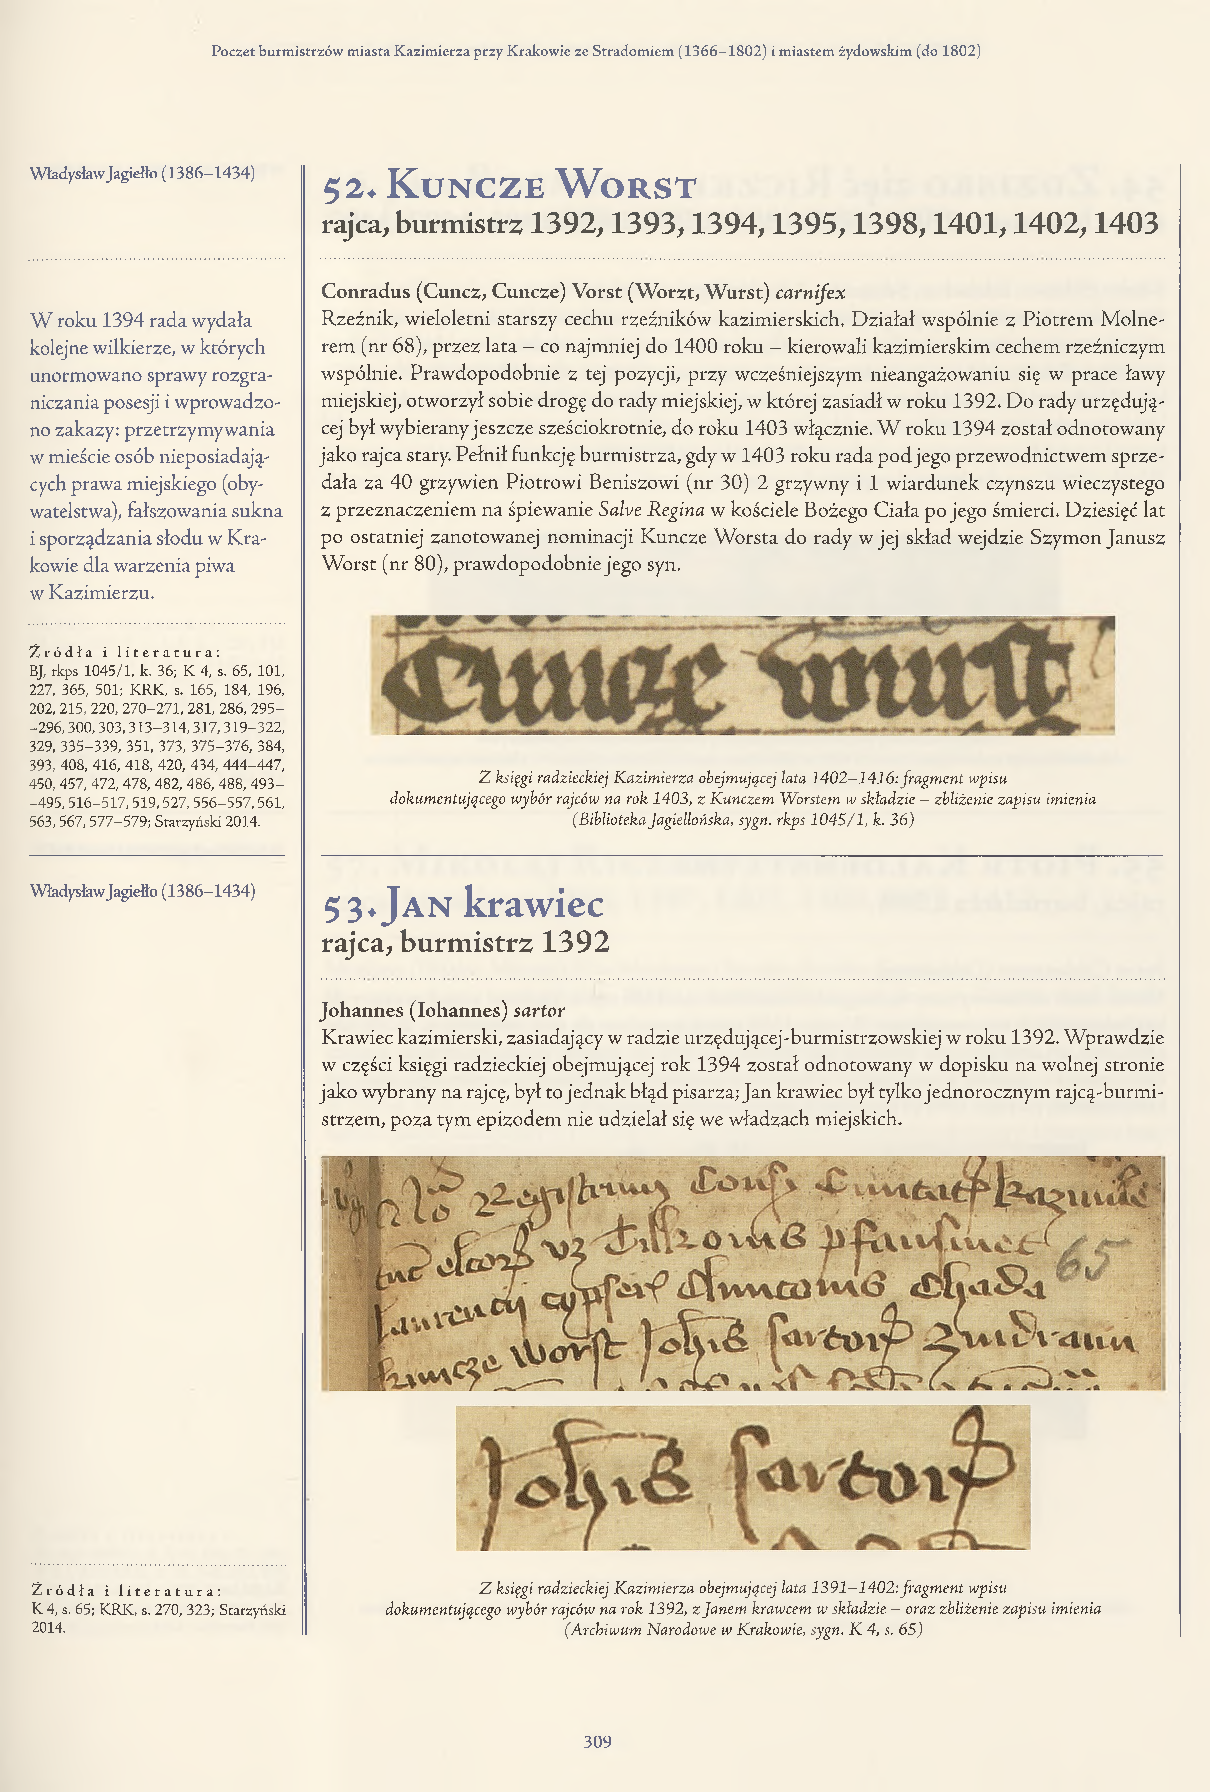 Poczet burmistrzów miasta Kazimierza przy Krakowie ze Stradomiem (1366–1802) i miastem żydowskim (do 1802)
Władysław Jagiełło (1386–1434)
W roku 1394 rada wydała
kolejne wilkierze, w których
unormowano sprawy rozgra-
niczania posesji i wprowadzo-
no zakazy: przetrzymywania
w mieście osób nieposiadają-
cych prawa miejskiego (oby-
watelstwa), fałszowania sukna
i sporządzania słodu w Kra-
kowie dla warzenia piwa
w Kazimierzu.
Źródła i literatura:
BJ, rkps 1045/1, k. 36; K 4, s. 65, 101,
227, 365, 501; KRK, s. 165, 184, 196,
202, 215, 220, 270–271, 281, 286, 295–
–296, 300, 303, 313–314, 317, 319–322,
329, 335–339, 351, 373, 375–376, 384,
393, 408, 416, 418, 420, 434, 444–447,
450, 457, 472, 478, 482, 486, 488, 493–
–495, 516–517, 519, 527, 556–557, 561,
563, 567, 577–579; Starzyński 2014.
52. Kuncze Worst
rajca, burmistrz 1392, 1393, 1394, 1395, 1398, 1401, 1402, 1403
Conradus (Cuncz, Cuncze) Vorst (Worzt, Wurst) carnifex
Rzeźnik, wieloletni starszy cechu rzeźników kazimierskich. Działał wspólnie z Piotrem Molne-
rem (nr 68), przez lata – co najmniej do 1400 roku – kierowali kazimierskim cechem rzeźniczym
wspólnie. Prawdopodobnie z tej pozycji, przy wcześniejszym nieangażowaniu się w prace ławy
miejskiej, otworzył sobie drogę do rady miejskiej, w której zasiadł w roku 1392. Do rady urzędują-
cej był wybierany jeszcze sześciokrotnie, do roku 1403 włącznie. W roku 1394 został odnotowany
jako rajca stary. Pełnił funkcję burmistrza, gdy w 1403 roku rada pod jego przewodnictwem sprze-
dała za 40 grzywien Piotrowi Beniszowi (nr 30) 2 grzywny i 1 wiardunek czynszu wieczystego
z przeznaczeniem na śpiewanie Salve Regina w kościele Bożego Ciała po jego śmierci. Dziesięć lat
po ostatniej zanotowanej nominacji Kuncze Worsta do rady w jej skład wejdzie Szymon Janusz
Worst (nr 80), prawdopodobnie jego syn.
Cuncze wurst
Z księgi radzieckiej Kazimierza obejmującej lata 1402–1416: fragment wpisu
dokumentującego wybór rajców na rok 1403, z Kunczem Worstem w składzie – zbliżenie zapisu imienia
(Biblioteka Jagiellońska, sygn. rkps 1045/1, k. 36)
Władysław Jagiełło (1386–1434)
53. Jan krawiec
rajca, burmistrz 1392
Johannes (Iohannes) sartor
Krawiec kazimierski, zasiadający w radzie urzędującej-burmistrzowskiej w roku 1392. Wprawdzie
w części księgi radzieckiej obejmującej rok 1394 został odnotowany w dopisku na wolnej stronie
jako wybrany na rajcę, był to jednak błąd pisarza; Jan krawiec był tylko jednorocznym rajcą-burmi-
strzem, poza tym epizodem nie udzielał się we władzach miejskich.
65
kuncze Worst
Z księgi radzieckiej Kazimierza obejmującej lata 1391–1402: fragment wpisu
dokumentującego wybór rajców na rok 1392, z Janem krawcem w składzie – oraz zbliżenie zapisu imienia
(Archiwum Narodowe w Krakowie, sygn. K 4, s. 65)
Źródła i literatura:
K 4, s. 65; KRK, s. 270, 323; Starzyński
2014.
309